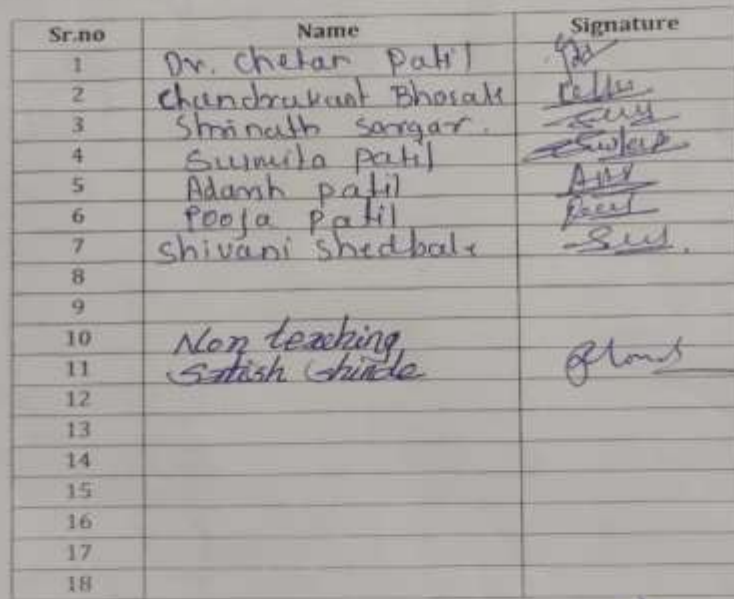 Sr.no Name Signature
1 Dr. Chetan Patil
2 Chandrakant Bhosale
3 Shrinath sargar.
4 Sumita patil
5 Adarsh patil
6 Pooja patil
7 Shivani Shedbale
8
9
10 Non teaching
11 Satish Shinde
12
13
14
15
16
17
18